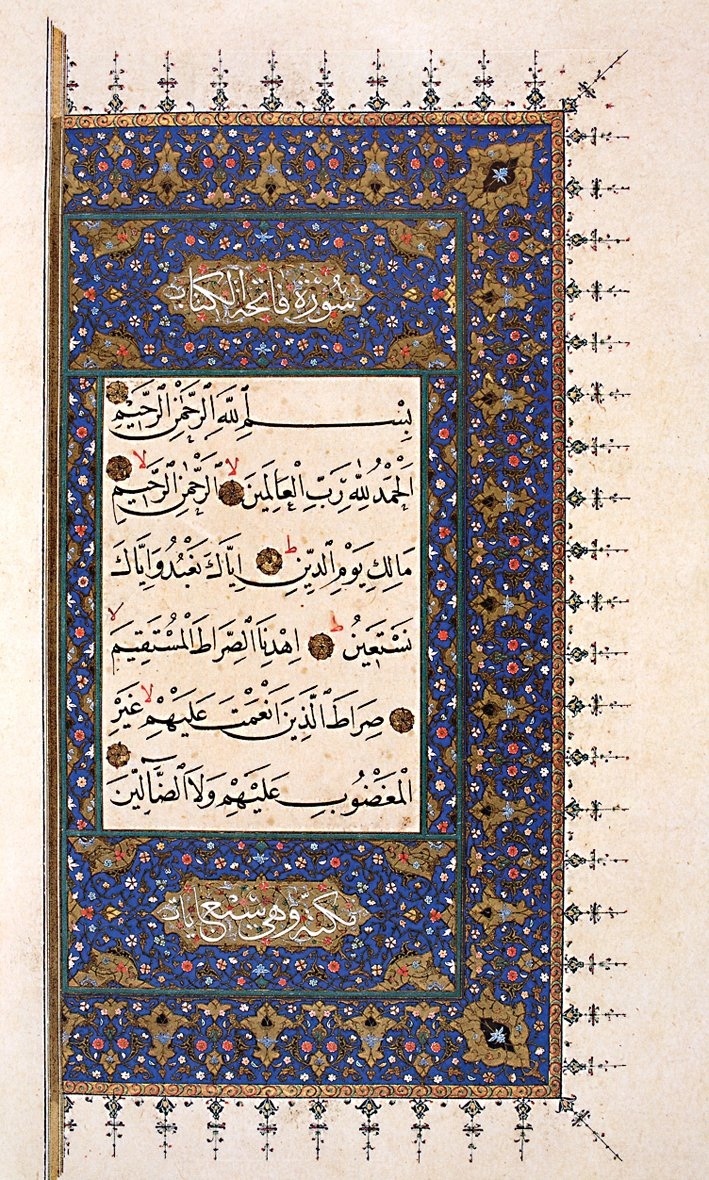 سُورَةُ فَاتِحَةِ الْكِتَابِ
بِسْمِ اللّٰهِ الرَّحْمٰنِ الرَّحِيْمِ
اَلْحَمْدُ لِلّٰهِ رَبِّ الْعَالَمِيْنَ لا اَلرَّحْمٰنِ الرَّحِيْمِ لا
مَالِكِ يَوْمِ الدِّيْنِ ط اِيَّاكَ نَعْبُدُ وَاِيَّاكَ
نَسْتَعِيْنُ ط اِهْدِنَا الصِّرَاطَ الْمُسْتَقِيْمَ لا
صِرَاطَ الَّذِيْنَ اَنْعَمْتَ عَلَيْهِمْ لا غَيْرِ
الْمَغْضُوْبِ عَلَيْهِمْ وَلَا الضَّآلِّيْنَ
مكيّة وهي سبع آيات